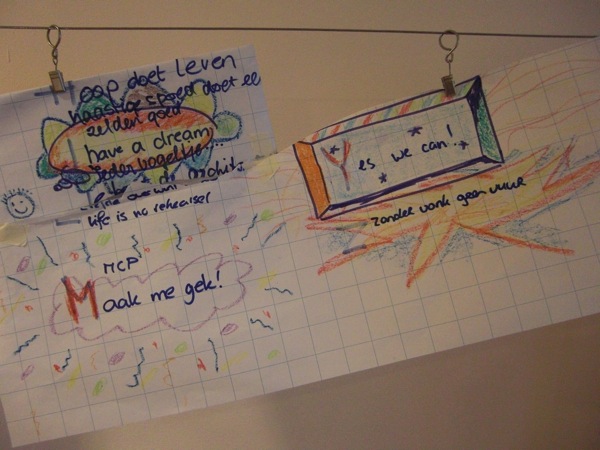 Hoop doet leven
haastige spoed doet ze
zelden goed
I have a dream
ieder vogeltje...
life is no rehearsel
MCP
Maak me gek!
Yes we can!
zonder vonk geen vuur